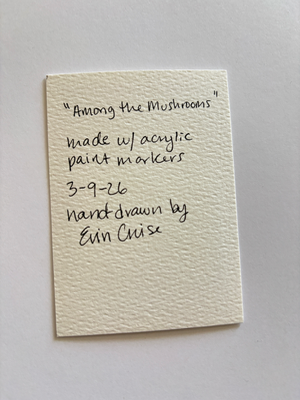 "Among the Mushrooms"
made w/ acrylic
paint markers
3-9-26
hand drawn by
Erin Cruise